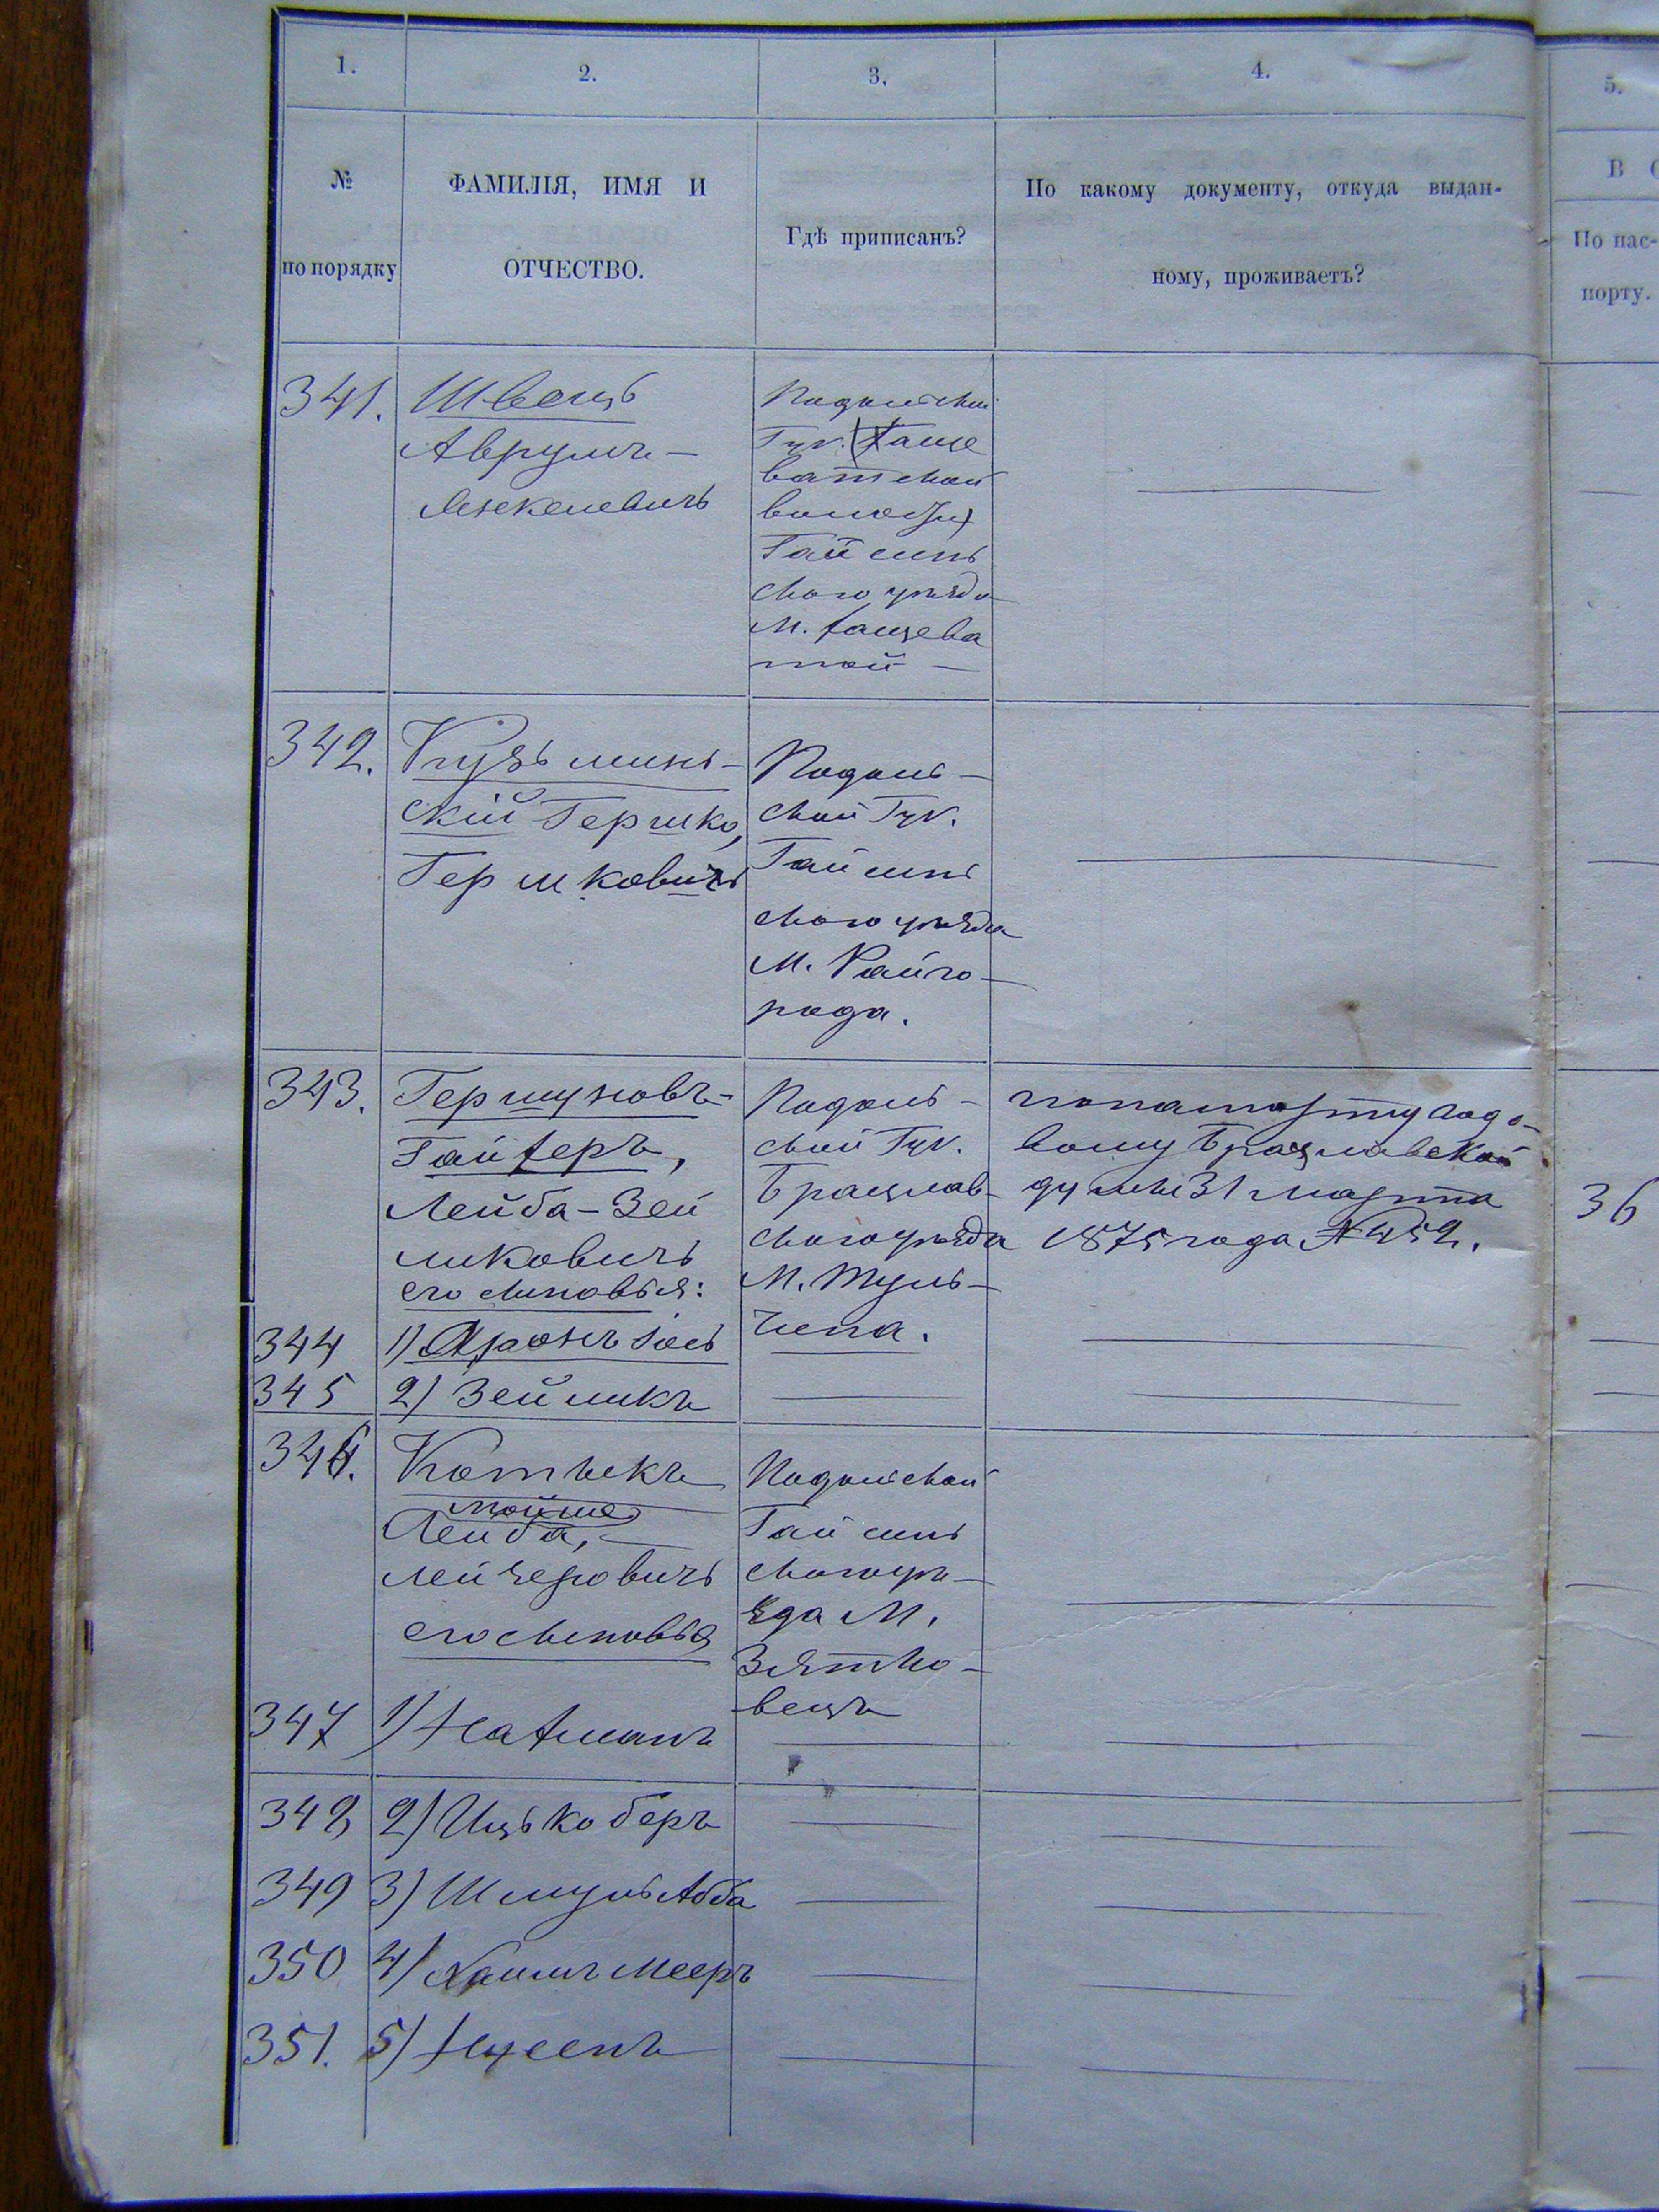 1.
2.
3.
4.
5.
№
по порядку
ФАМИЛІЯ, ИМЯ И
ОТЧЕСТВО.
Гдѣ приписанъ?
По какому документу, откуда выдан-
ному, проживаетъ?
В
По пас-
порту.
341.
Швецъ
Аврумъ —
Подольской
Губ.
ватской
волости
Гайсинь
скаго уѣзда
М. Хащева
той —
342.
Кузьминь-
скій Гершко,
Гершковичъ
Подоль-
ской Губ.
Гайсинь
скаго уѣзда
М. Райго-
рода.
343.
Гершуновъ-
Гайхеръ,
Лейба-Зей
ликовичъ
его сыновья:
Подоль-
ской Губ.
Брацлав-
скаго уѣзда
М. Туль-
чина.
по паспорту годо-
вому Брацлавской
думы 31 марта
1875 года №
36
344
1) Аронъ Іось
345
2) Зейликъ
346.
Котыкъ
Мойше
Лейба, —
Лейзеровичъ
его сыновья
Подольской
Гайсинь
скаго уѣ-
зда М.
Зятко-
вецъ
347
1) Нахманъ
348
2) Ицько беръ
349
3) Шмуль Абба
350
4) Хаимъ Мееръ
351.
5) Нусенъ